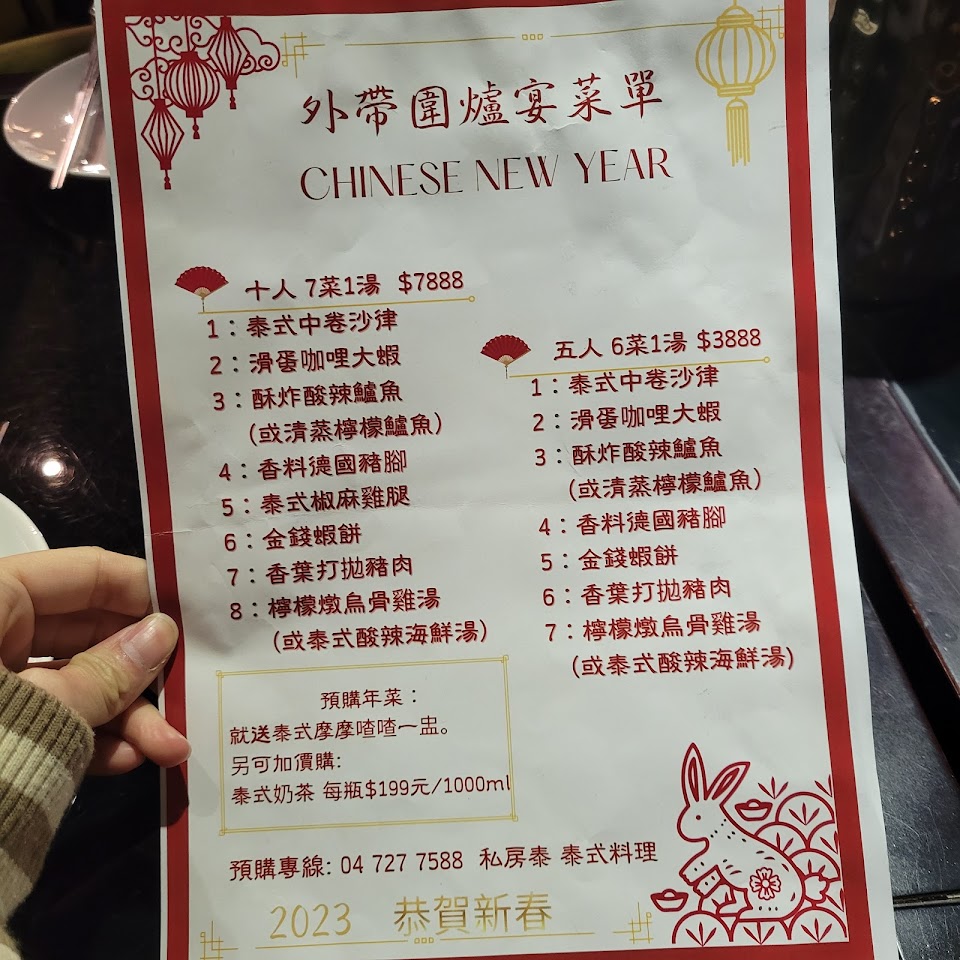 外帶圍爐宴菜單
CHINESE NEW YEAR
十人 7菜1湯 $7888
1：泰式中卷沙律
2：滑蛋咖哩大蝦
3：酥炸酸辣鱸魚
(或清蒸檸檬鱸魚)
4：香料德國豬腳
5：泰式椒麻雞腿
6：金錢蝦餅
7：香葉打拋豬肉
8：檸檬燉烏骨雞湯
(或泰式酸辣海鮮湯)
五人 6菜1湯 $3888
1：泰式中卷沙律
2：滑蛋咖哩大蝦
3：酥炸酸辣鱸魚
(或清蒸檸檬鱸魚)
4：香料德國豬腳
5：金錢蝦餅
6：香葉打拋豬肉
7：檸檬燉烏骨雞湯
(或泰式酸辣海鮮湯)
預購年菜：
就送泰式摩摩喳喳一盅。
另可加價購:
泰式奶茶 每瓶$199元/1000ml
預購專線: 04 727 7588 私房泰 泰式料理
2023 恭賀新春